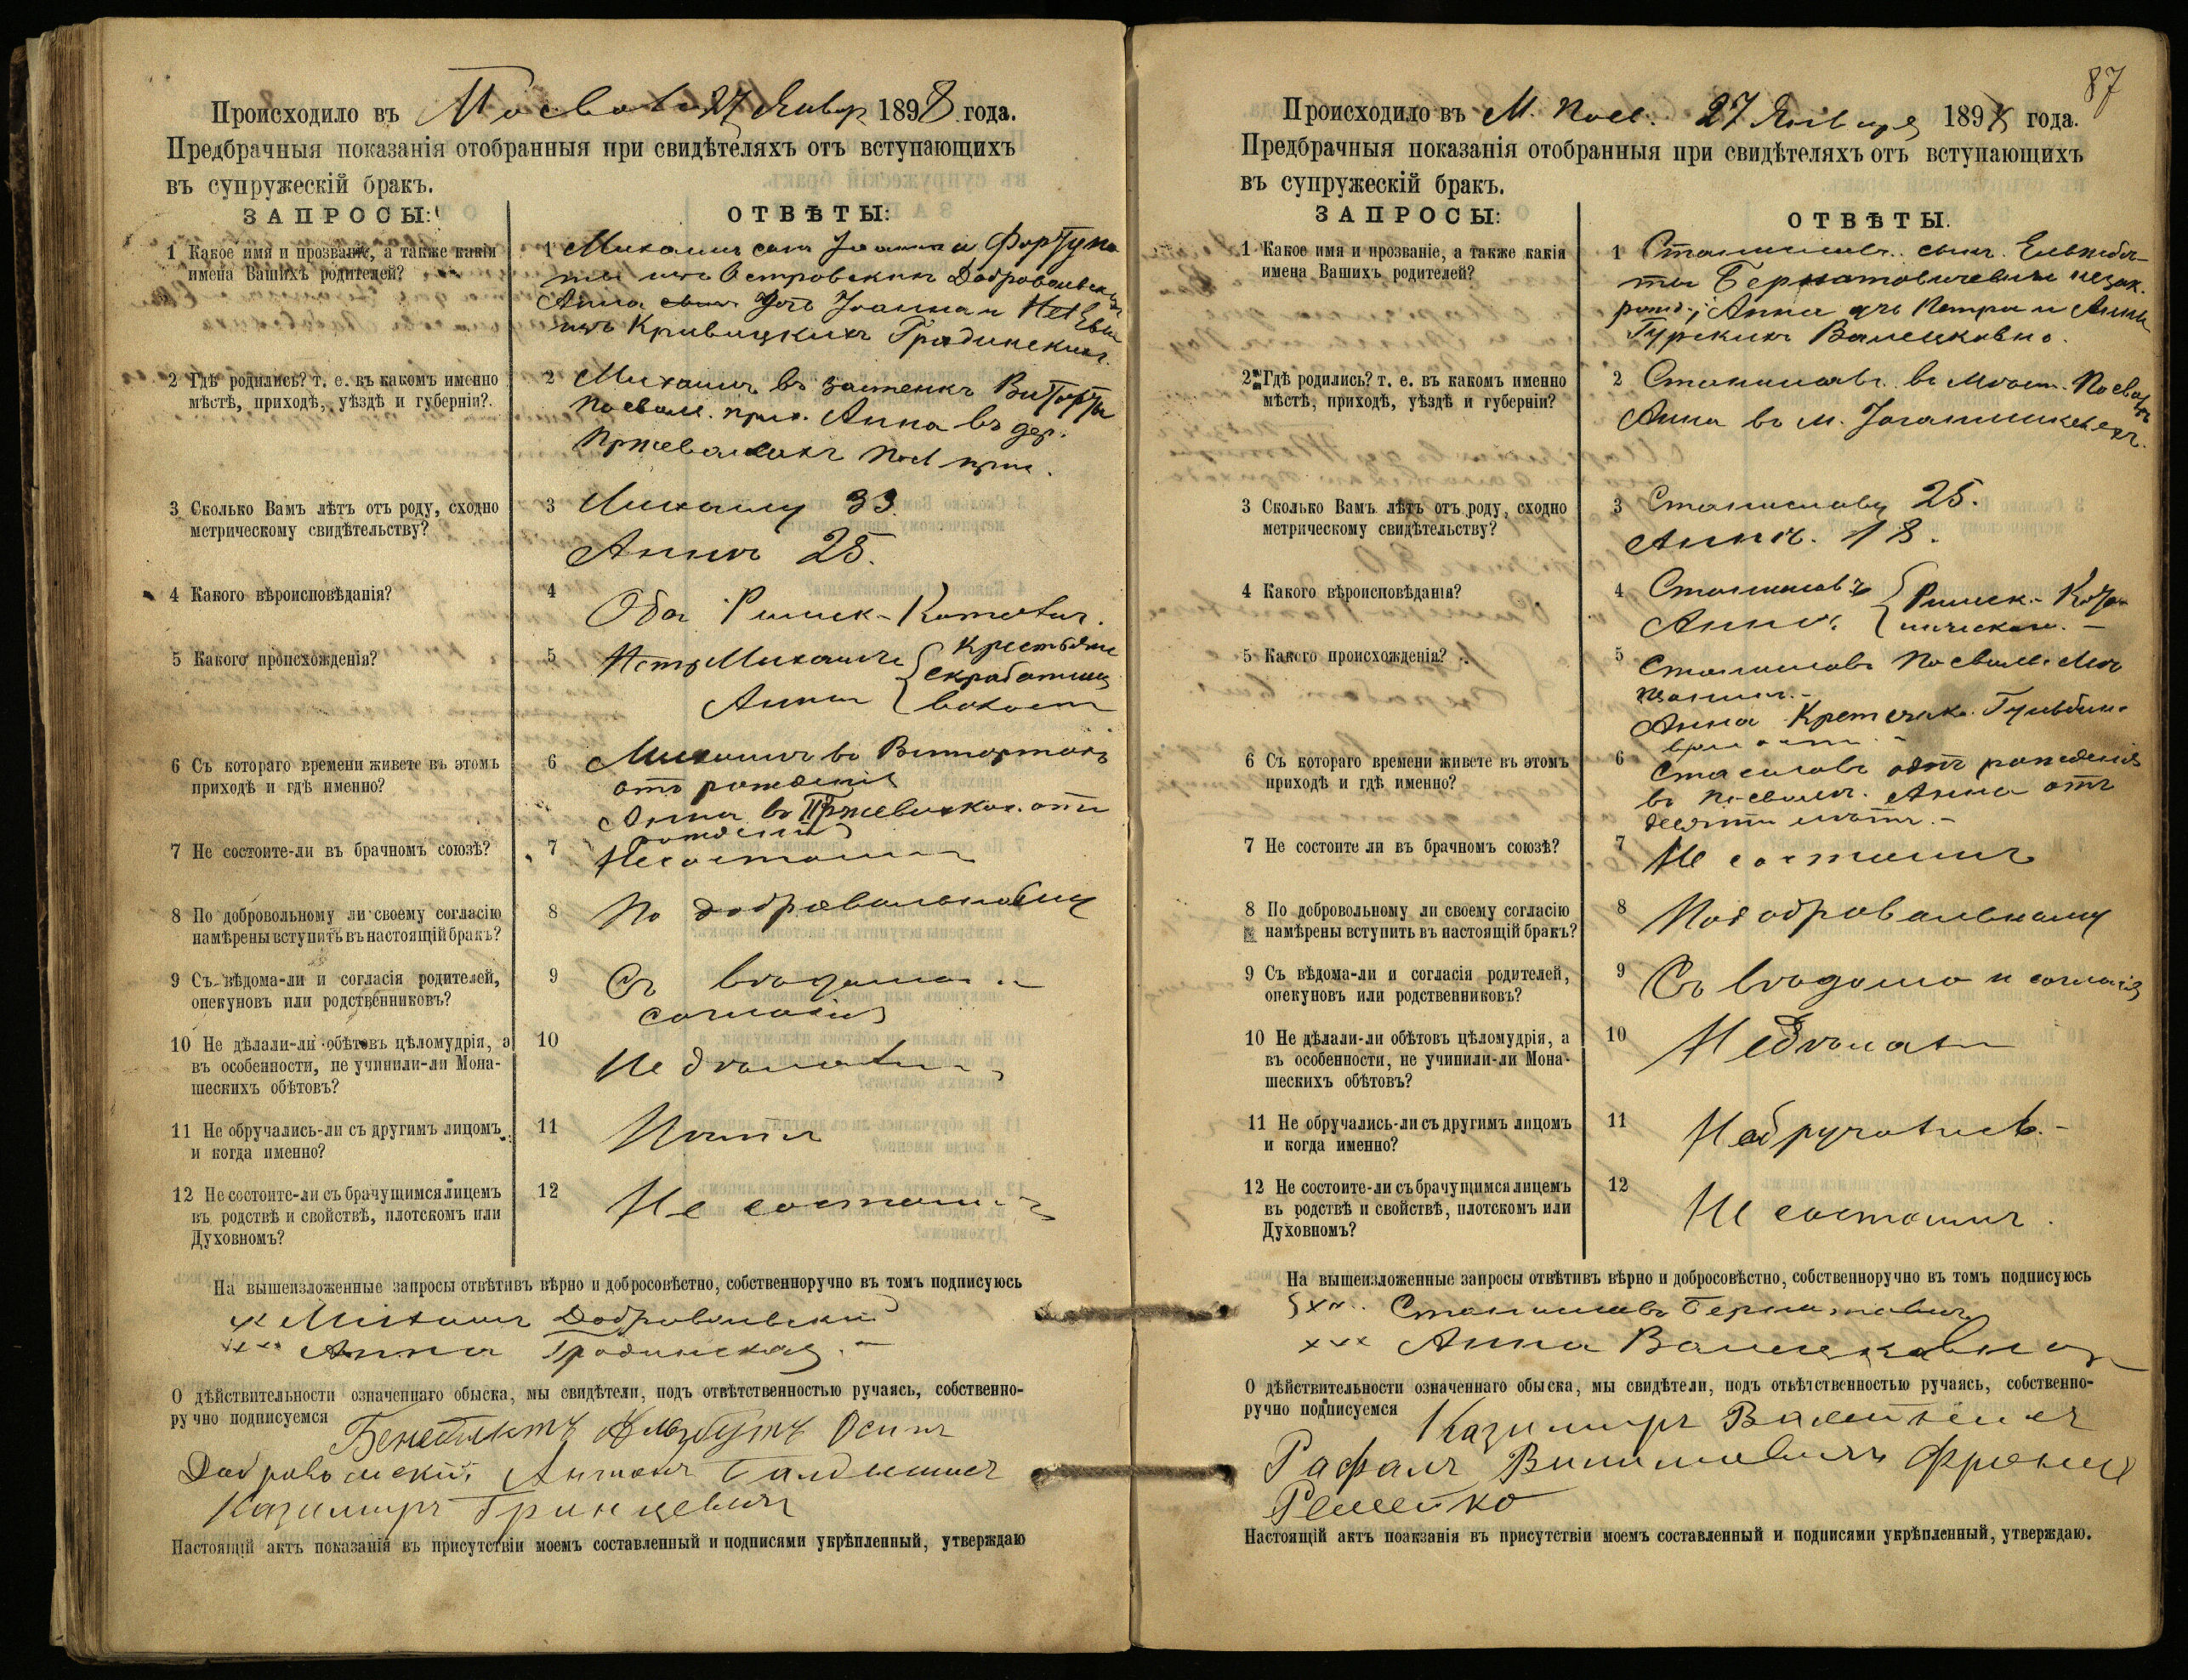 Происходило въ Посволь 27 Январ 1898 года.
Предбрачныя показанія отобранныя при свидѣтеляхъ отъ вступающихъ
въ супружескій бракъ.
ЗАПРОСЫ:
ОТВѢТЫ:
1 Какое имя и прозваніе, а также какія
имена Вашихъ родителей?
1 Михаилъ сынъ Іоанна и Фортуна
ты изъ Островскихъ Добровольскихъ
Анна дочь Іоанна и
изъ Кривицкихъ Градинскихъ.
2 Гдѣ родились? т. е. въ какомъ именно
мѣстѣ, приходѣ, уѣздѣ и губерніи?
2 Михаилъ въ застенкѣ
Посвол. прих. Анна въ дер.
Посв прих.
3 Сколько Вамъ лѣтъ отъ роду, сходно
метрическому свидѣтельству?
3 Михаилу 33.
Аннѣ 25.
4 Какого вѣроисповѣданія?
4 Оба Римск-Католич.
5 Какого происхожденія?
5 Михаилъ Крестьяне
Анна волости
6 Съ котораго времени живете въ этомъ
приходѣ и гдѣ именно?
6 Михаилъ въ
отъ рожденія
Анна въ отъ
рожденія
7 Не состоите-ли въ брачномъ союзѣ?
7 Несостоимъ
8 По добровольному ли своему согласію
намѣрены вступить въ настоящій бракъ?
8 По добровольному
9 Съ вѣдома-ли и согласія родителей,
опекуновъ или родственниковъ?
9 Съ вѣдома и
согласія
10 Не дѣлали-ли обѣтовъ цѣломудрія, а
въ особенности, не учинили-ли Мона-
шескихъ обѣтовъ?
10 Не дѣлали
11 Не обручались-ли съ другимъ лицомъ
и когда именно?
11
12 Не состоите-ли съ брачущимся лицемъ
въ родствѣ и свойствѣ, плотскомъ или
Духовномъ?
12 Не состоимъ
На вышеизложенные запросы отвѣтивъ вѣрно и добросовѣстно, собственноручно въ томъ подписуюсь
Михаилъ Добровольскій
xxx Анна Градинская
О дѣйствительности означеннаго обыска, мы свидѣтели, подъ отвѣтственностью ручаясь, собственно-
ручно подписуемся Бенедиктъ Осипъ
Добровольскій Антонъ
Казимиръ Гринцевичъ
Настоящій актъ показанія въ присутствіи моемъ составленный и подписями укрѣпленный, утверждаю
87
Происходило въ М. Посв. 27 Января 1898 года.
Предбрачныя показанія отобранныя при свидѣтеляхъ отъ вступающихъ
въ супружескій бракъ.
ЗАПРОСЫ:
ОТВѢТЫ.
1 Какое имя и прозваніе, а также какія
имена Вашихъ родителей?
1 Станиславъ сынъ Елизабе-
ты незак.
рожд.; Анна дч Петра и Анны
Гурскихъ
2 Гдѣ родились? т. е. въ какомъ именно
мѣстѣ, приходѣ, уѣздѣ и губерніи?
2 Станиславъ въ Мѣст. Посволь
Анна въ м. Іоганишкеляхъ.
3 Сколько Вамъ лѣтъ отъ роду, сходно
метрическому свидѣтельству?
3 Станиславу 25.
Аннѣ. 18.
4 Какого вѣроисповѣданія?
4 Станиславъ Римск.-Като-
Анна лическаго.
5 Какого происхожденія?
5 Станиславъ Посвол. Мѣ
щанинъ.
Анна
6 Съ котораго времени живете въ этомъ
приходѣ и гдѣ именно?
6 отъ рожденія
въ Посволѣ. Анна отъ
десяти лѣтъ.
7 Не состоите ли въ брачномъ союзѣ?
7 Не состоимъ
8 По добровольному ли своему согласію
намѣрены вступить въ настоящій бракъ?
8 По добровольному
9 Съ вѣдома-ли и согласія родителей,
опекуновъ или родственниковъ?
9 Съ вѣдома и согласія
10 Не дѣлали-ли обѣтовъ цѣломудрія, а
въ особенности, не учинили-ли Мона-
шескихъ обѣтовъ?
10 Не дѣлали
11 Не обручались-ли съ другимъ лицомъ
и когда именно?
11 Необручались.
12 Не состоите-ли съ брачущимся лицемъ
въ родствѣ и свойствѣ, плотскомъ или
Духовномъ?
12 Не состоимъ.
На вышеизложенные запросы отвѣтивъ вѣрно и добросовѣстно, собственноручно въ томъ подписуюсь
Станиславъ
xxx Анна
О дѣйствительности означеннаго обыска, мы свидѣтели, подъ отвѣтственностью ручаясь, собственно-
ручно подписуемся Казимиръ
Рафалъ
Настоящій актъ поакзанія въ присутствіи моемъ составленный и подписями укрѣпленный, утверждаю.